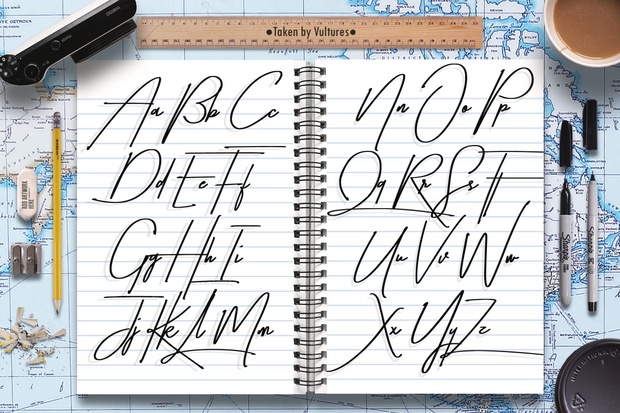 •Taken by Vultures•
Aa Bb Cc
Dd Ee Ff
Gg Hh Ii
Jj Kk Ll Mm
Nn Oo Pp
Qq Rr Ss Tt
Uu Vv Ww
Xx Yy Zz
ADD ARTWORK
HERE
Sharpie